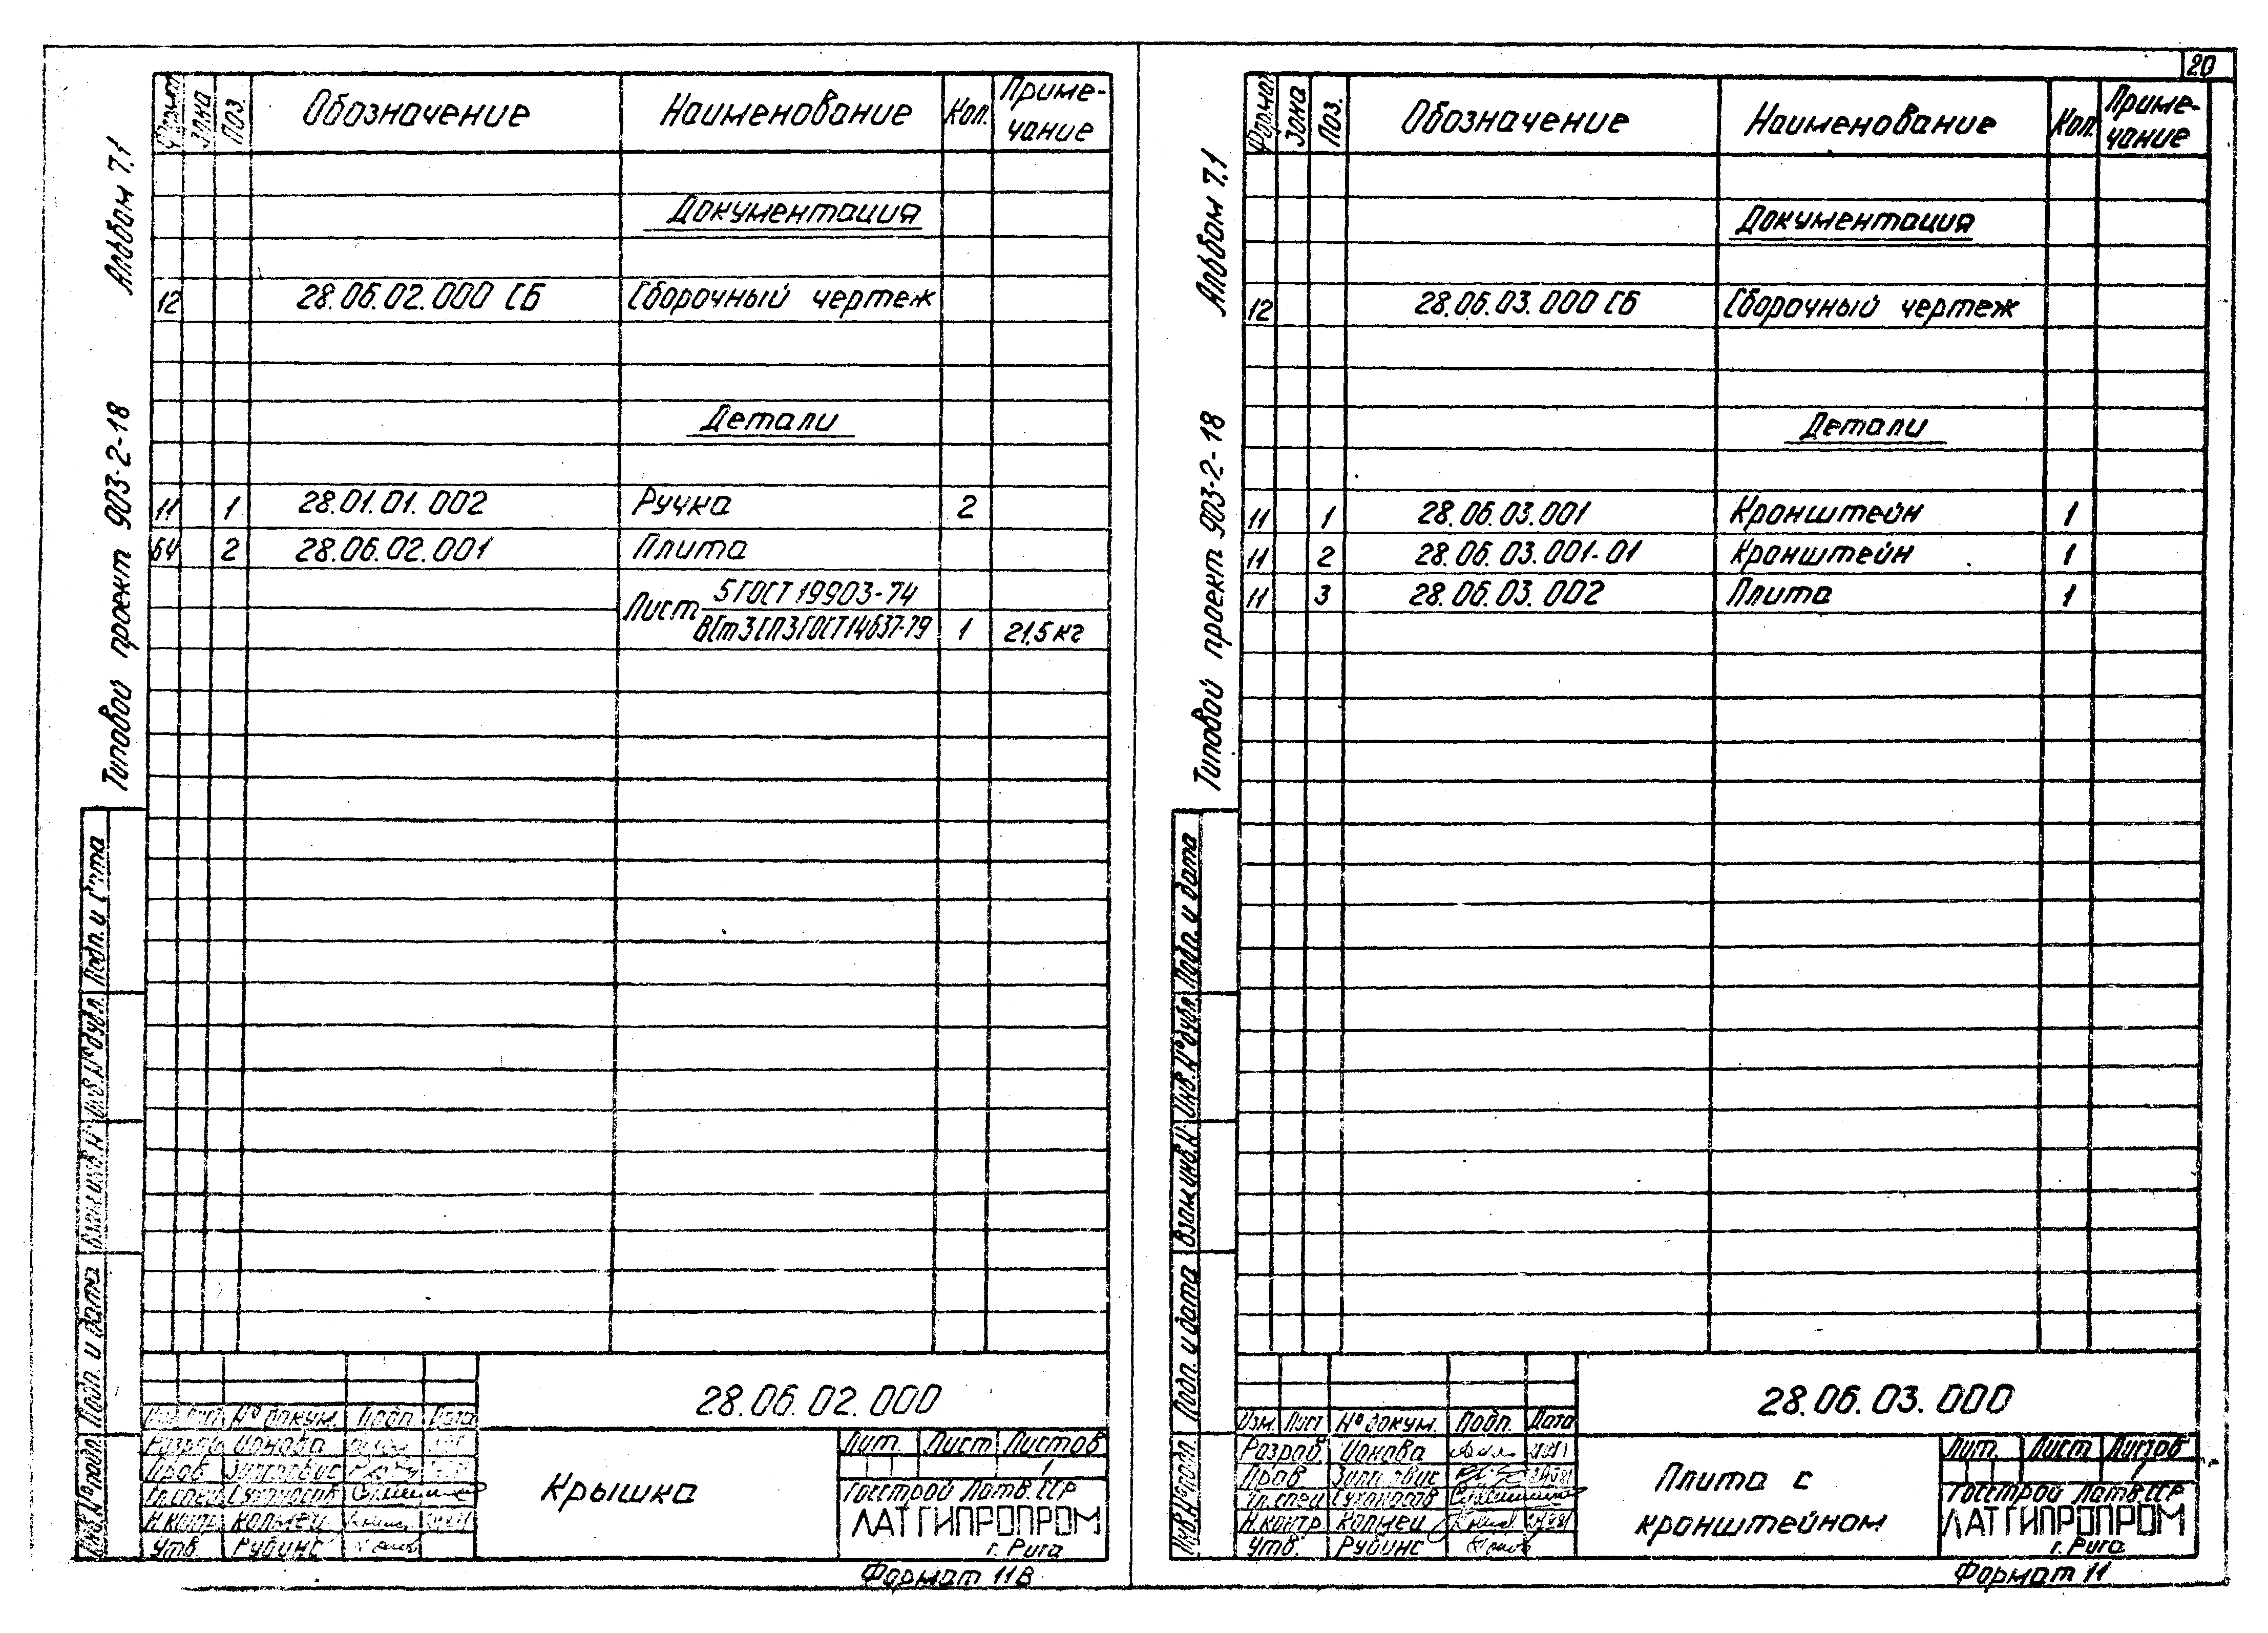 20
Альбом 7.1
Типовой проект 903-2-18
Формат Зона Поз. Обозначение Наименование Кол. Приме-
чание
Документация
12 28.06.02.000 СБ Сборочный чертеж
Детали
11 1 28.01.01.002 Ручка 2
БЧ 2 28.06.02.001 Плита
Лист 5 ГОСТ 19903-74
ВСт3СП3 ГОСТ 14637-79 1 21,5 кг
Подп. и дата
Инв. № дубл.
Взам. инв. №
Подп. и дата
Инв. № подл.
28.06.02.000
Изм. Лист № докум. Подп. Дата
Разраб. Ионова
Пров.
Гл. спец. Суханосов
Н. контр. Калмец
Утв. Рубинс
Крышка
Лит. Лист Листов
1
Госстрой Латв. ССР
ЛАТГИПРОПРОМ
г. Рига
Формат 11В
Альбом 7.1
Типовой проект 903-2-18
Формат Зона Поз. Обозначение Наименование Кол. Приме-
чание
Документация
12 28.06.03.000 СБ Сборочный чертеж
Детали
11 1 28.06.03.001 Кронштейн 1
11 2 28.06.03.001-01 Кронштейн 1
11 3 28.06.03.002 Плита 1
Подп. и дата
Инв. № дубл.
Взам. инв. №
Подп. и дата
Инв. № подл.
28.06.03.000
Изм. Лист № докум. Подп. Дата
Разраб. Ионова
Пров.
Гл. спец. Суханосов
Н. контр. Калмец
Утв. Рубинс
Плита с
кронштейном
Лит. Лист Листов
1
Госстрой Латв. ССР
ЛАТГИПРОПРОМ
г. Рига
Формат 11